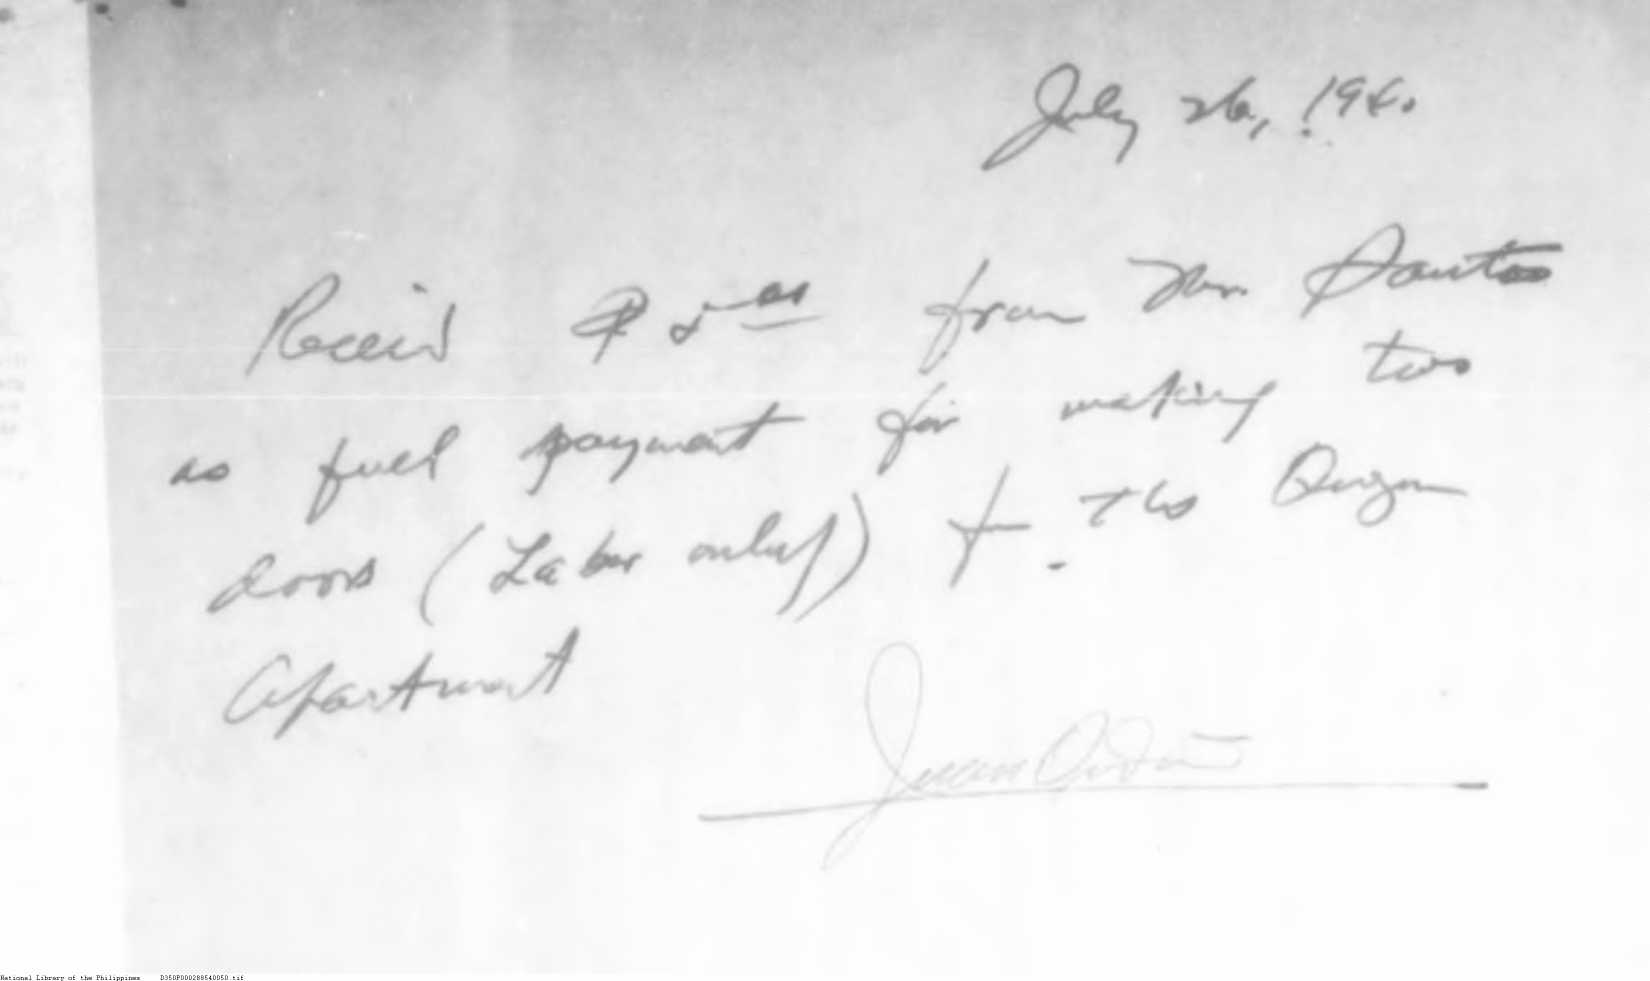 July 26, 194.
Receiv ₱ 5 from Mr. Santos
as full payment for making two
doors (Labor only) for the
apartment
Juan
National Library of the Philippines D350P000288540050.tif